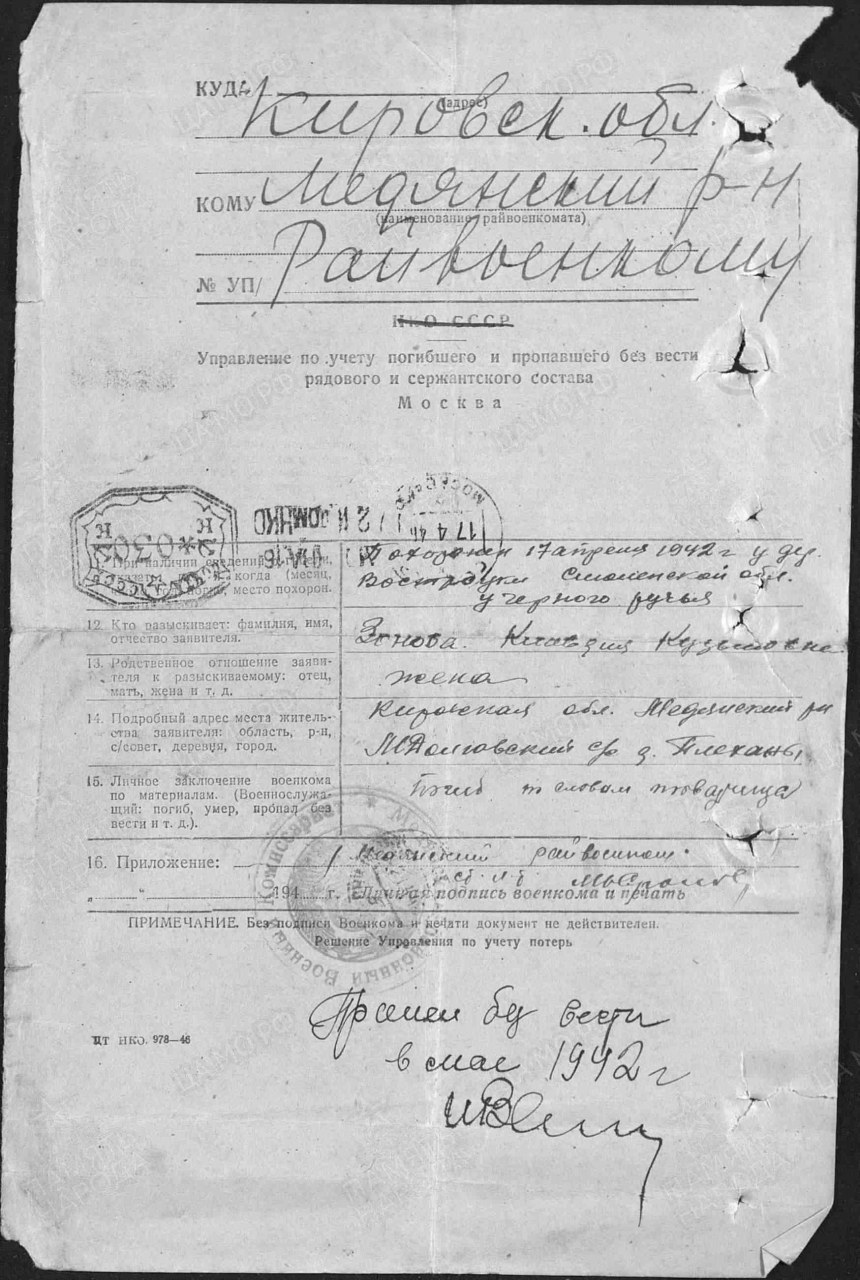 КУДА
(адрес)
Кировск. обл.
КОМУ Медянский р-н
(наименование райвоенкомата)
Райвоенкому
№ УП/
НКО СССР
Управление по учету погибшего и пропавшего без вести
рядового и сержантского состава
Москва
17 4 46
030
При наличии
когда (месяц,
место похорон.
Похоронен 17 апреля 1942 г у дер.
Смоленской обл.
у черного ручья
12. Кто разыскивает: фамилия, имя,
отчество заявителя.
Зонова Клавдия Кузьмовна
13. Родственное отношение заяви-
теля к разыскиваемому: отец,
мать, жена и т. д.
жена
14. Подробный адрес места житель-
ства заявителя: область, р-н,
с/совет, деревня, город.
Кировская обл. Медянский рн
с/с д. Плеханы
15. Личное заключение военкома
по материалам. (Военнослужа-
щий: погиб, умер, пропал без
вести и т. д.).
Погиб словам товарища
16. Приложение:
Медянский райвоенком
„ “ 194 г. Личная подпись военкома и печать
ПРИМЕЧАНИЕ. Без подписи Военкома и печати документ не действителен.
Решение Управления по учету потерь
Военный Комиссариат
Пропал без вести
в мае 1942 г
ЦТ НКО. 978—46
ЦАМО РФ